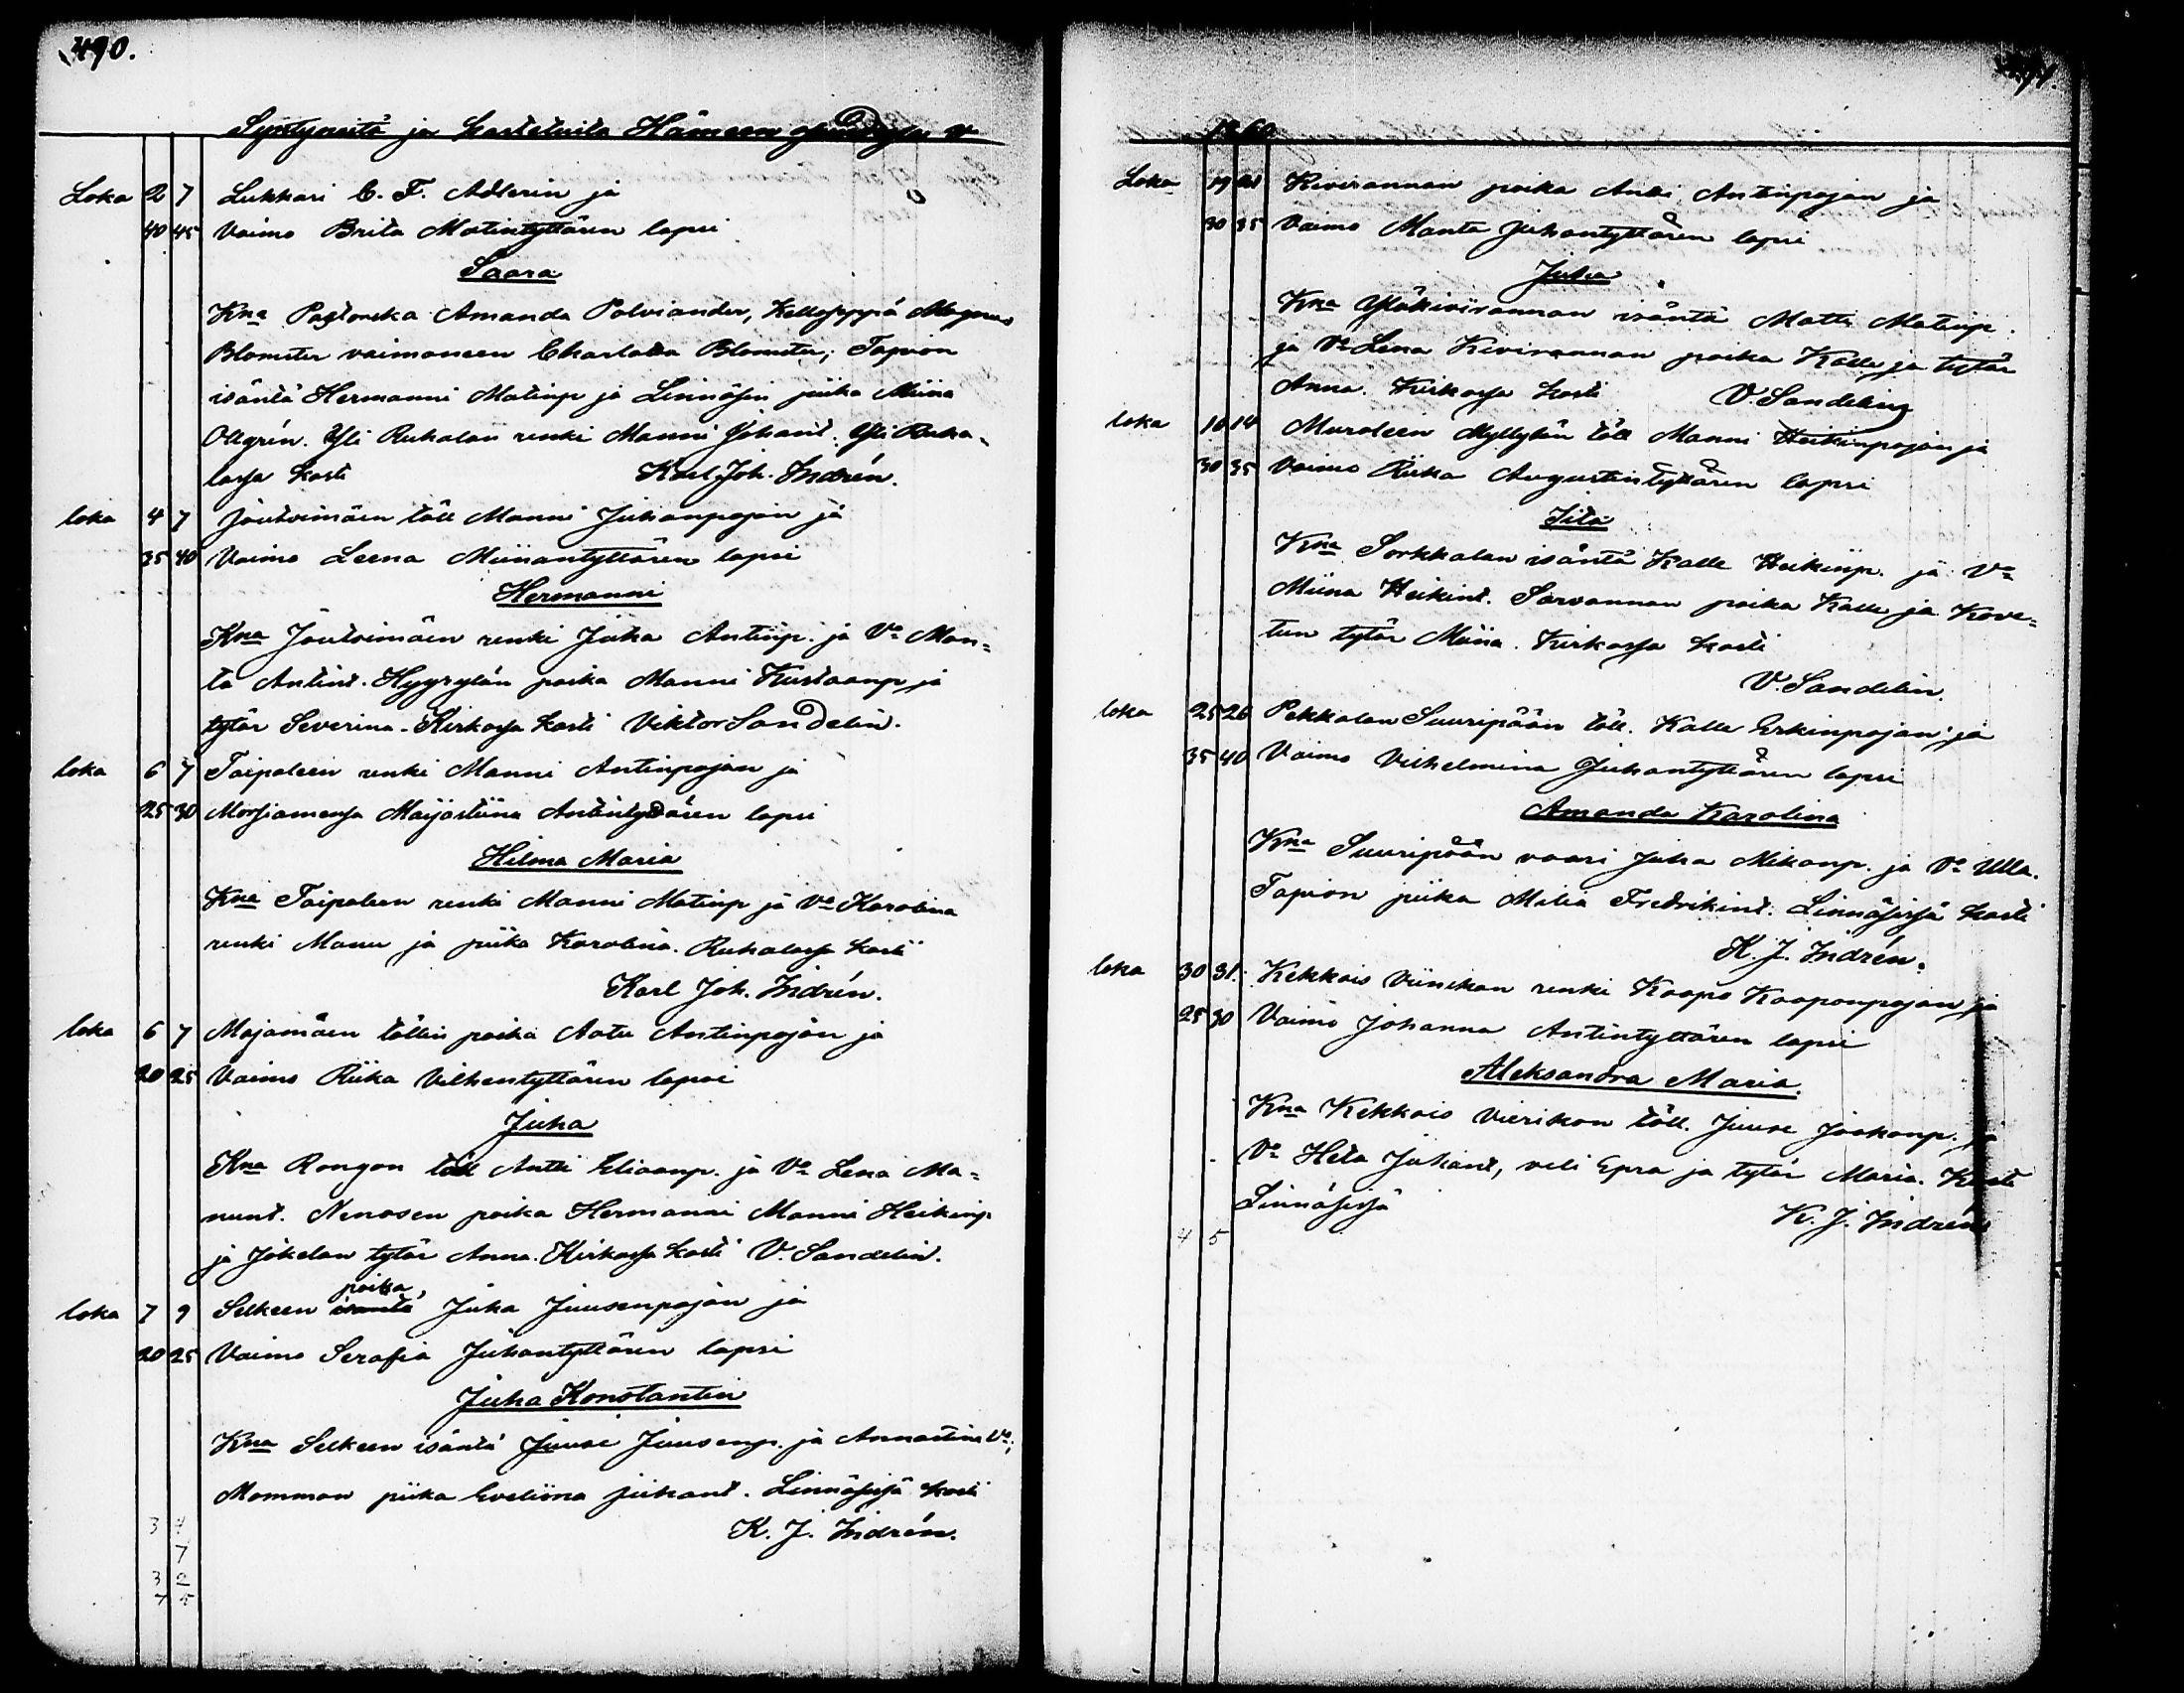 490.
Syntyneitä ja kastetuita Hämeen v
Loka 2 7 Lukkari C. F. Adlerin ja
40 45 Vaimo Brita Matintyttären lapsi
Saara
Kna Pastorska Amanda Polviander, Kelloseppä Magnus
Blomster vaimoneen Charlotta Blomster, Tapion
isäntä Hermanni Matinp ja Linnäsin piika Miina
Ollgrén. Yli Ruhalan renki Manni Johant. Yli Ruha-
lassa kasti Karl Joh. Indrén.
loka 4 7 Joutsimäen töll Manni Juhanpojan ja
35 40 Vaimo Leena Miinantyttären lapsi
Hermanni
Kna Joutsimäen renki Juha Antinp. ja Vo Man=
ta Antint. Hyyrylän poika Manni Kustaanp ja
tytär Severina. Kirkossa kasti Viktor Sandelin.
loka 6 7 Taipaleen renki Manni Antinpojan ja
25 30 Morsiamensa Maijastiina Antintyttären lapsi
Hilma Maria
Kna Taipaleen renki Manni Matinp ja Vo Karolina
renki Manu ja piika Karolina. Ruhalassa kasti
Karl Joh. Indrén.
loka 6 7 Majamäen töllin poika Aatu Antinpojan ja
20 25 Vaimo Riika Vilhentyttären lapsi
Juha
Kna Rongon töll Antti Eliaanp. ja Vo Lena Ma=
nunt. Nenosen poika Hermanni Manni Heikinp
ja Jokelan tytär Anna. Kirkossa kasti V. Sandelin.
poika,
loka 7 9 Selkeen isäntä Juha Juusenpojan ja
20 25 Vaimo Serafia Juhantyttären lapsi
Juha Konstantin
Kna Selkeen isäntä Juuse Juusenp. ja Annastina Vo;
Momman piika Eveliina Juhant. Linnäsissä kasti
3 4 K. J. Indrén.
7
3 2
7 5
491.
1860
Loka 19 21 Kivirannan poika Antti Antinpojan ja
30 35 Vaimo Manta Juhantyttären lapsi
Juha
Kna Yläkivirannan isäntä Matti Matinp.
ja Vo Lena Kivirannan poika Kalle ja tytär
Anna. Kirkossa kasti V. Sandelin
loka 10 14 Muroleen Myllytön töll Manni Heikinpojan ja
30 35 Vaimo Riika Augustintyttären lapsi
Iita
Kna Sorkkalan isäntä Kalle Heikinp. ja Vo
Miina Heikint. Sarvannan poika Kalle ja Kove=
tun tytär Miina. Kirkossa kasti
V. Sandelin.
loka 25 26 Pekkalan Suuripään töll. Kalle Erkinpojan ja
35 40 Vaimo Vilhelmina Juhantyttären lapsi
Amanda Karolina
Kna Suuripään vaari Juha Mikonp. ja Vo Ulla.
Tapion piika Milia Fredrikint. Linnäsissä kasti
K. J. Indrén.
loka 30 31. Kekkois Viinikan renki Kaapo Kaaponpojan ja
25 30 Vaimo Johanna Antintyttären lapsi
Aleksandra Maria.
Kna Kekkois Vierikon töll. Juuse Jaakonp. ja
Vo Heta Juhant, veli Epra ja tytär Maria. Kasti
Linnäsissä
4 5 K. J. Indrén